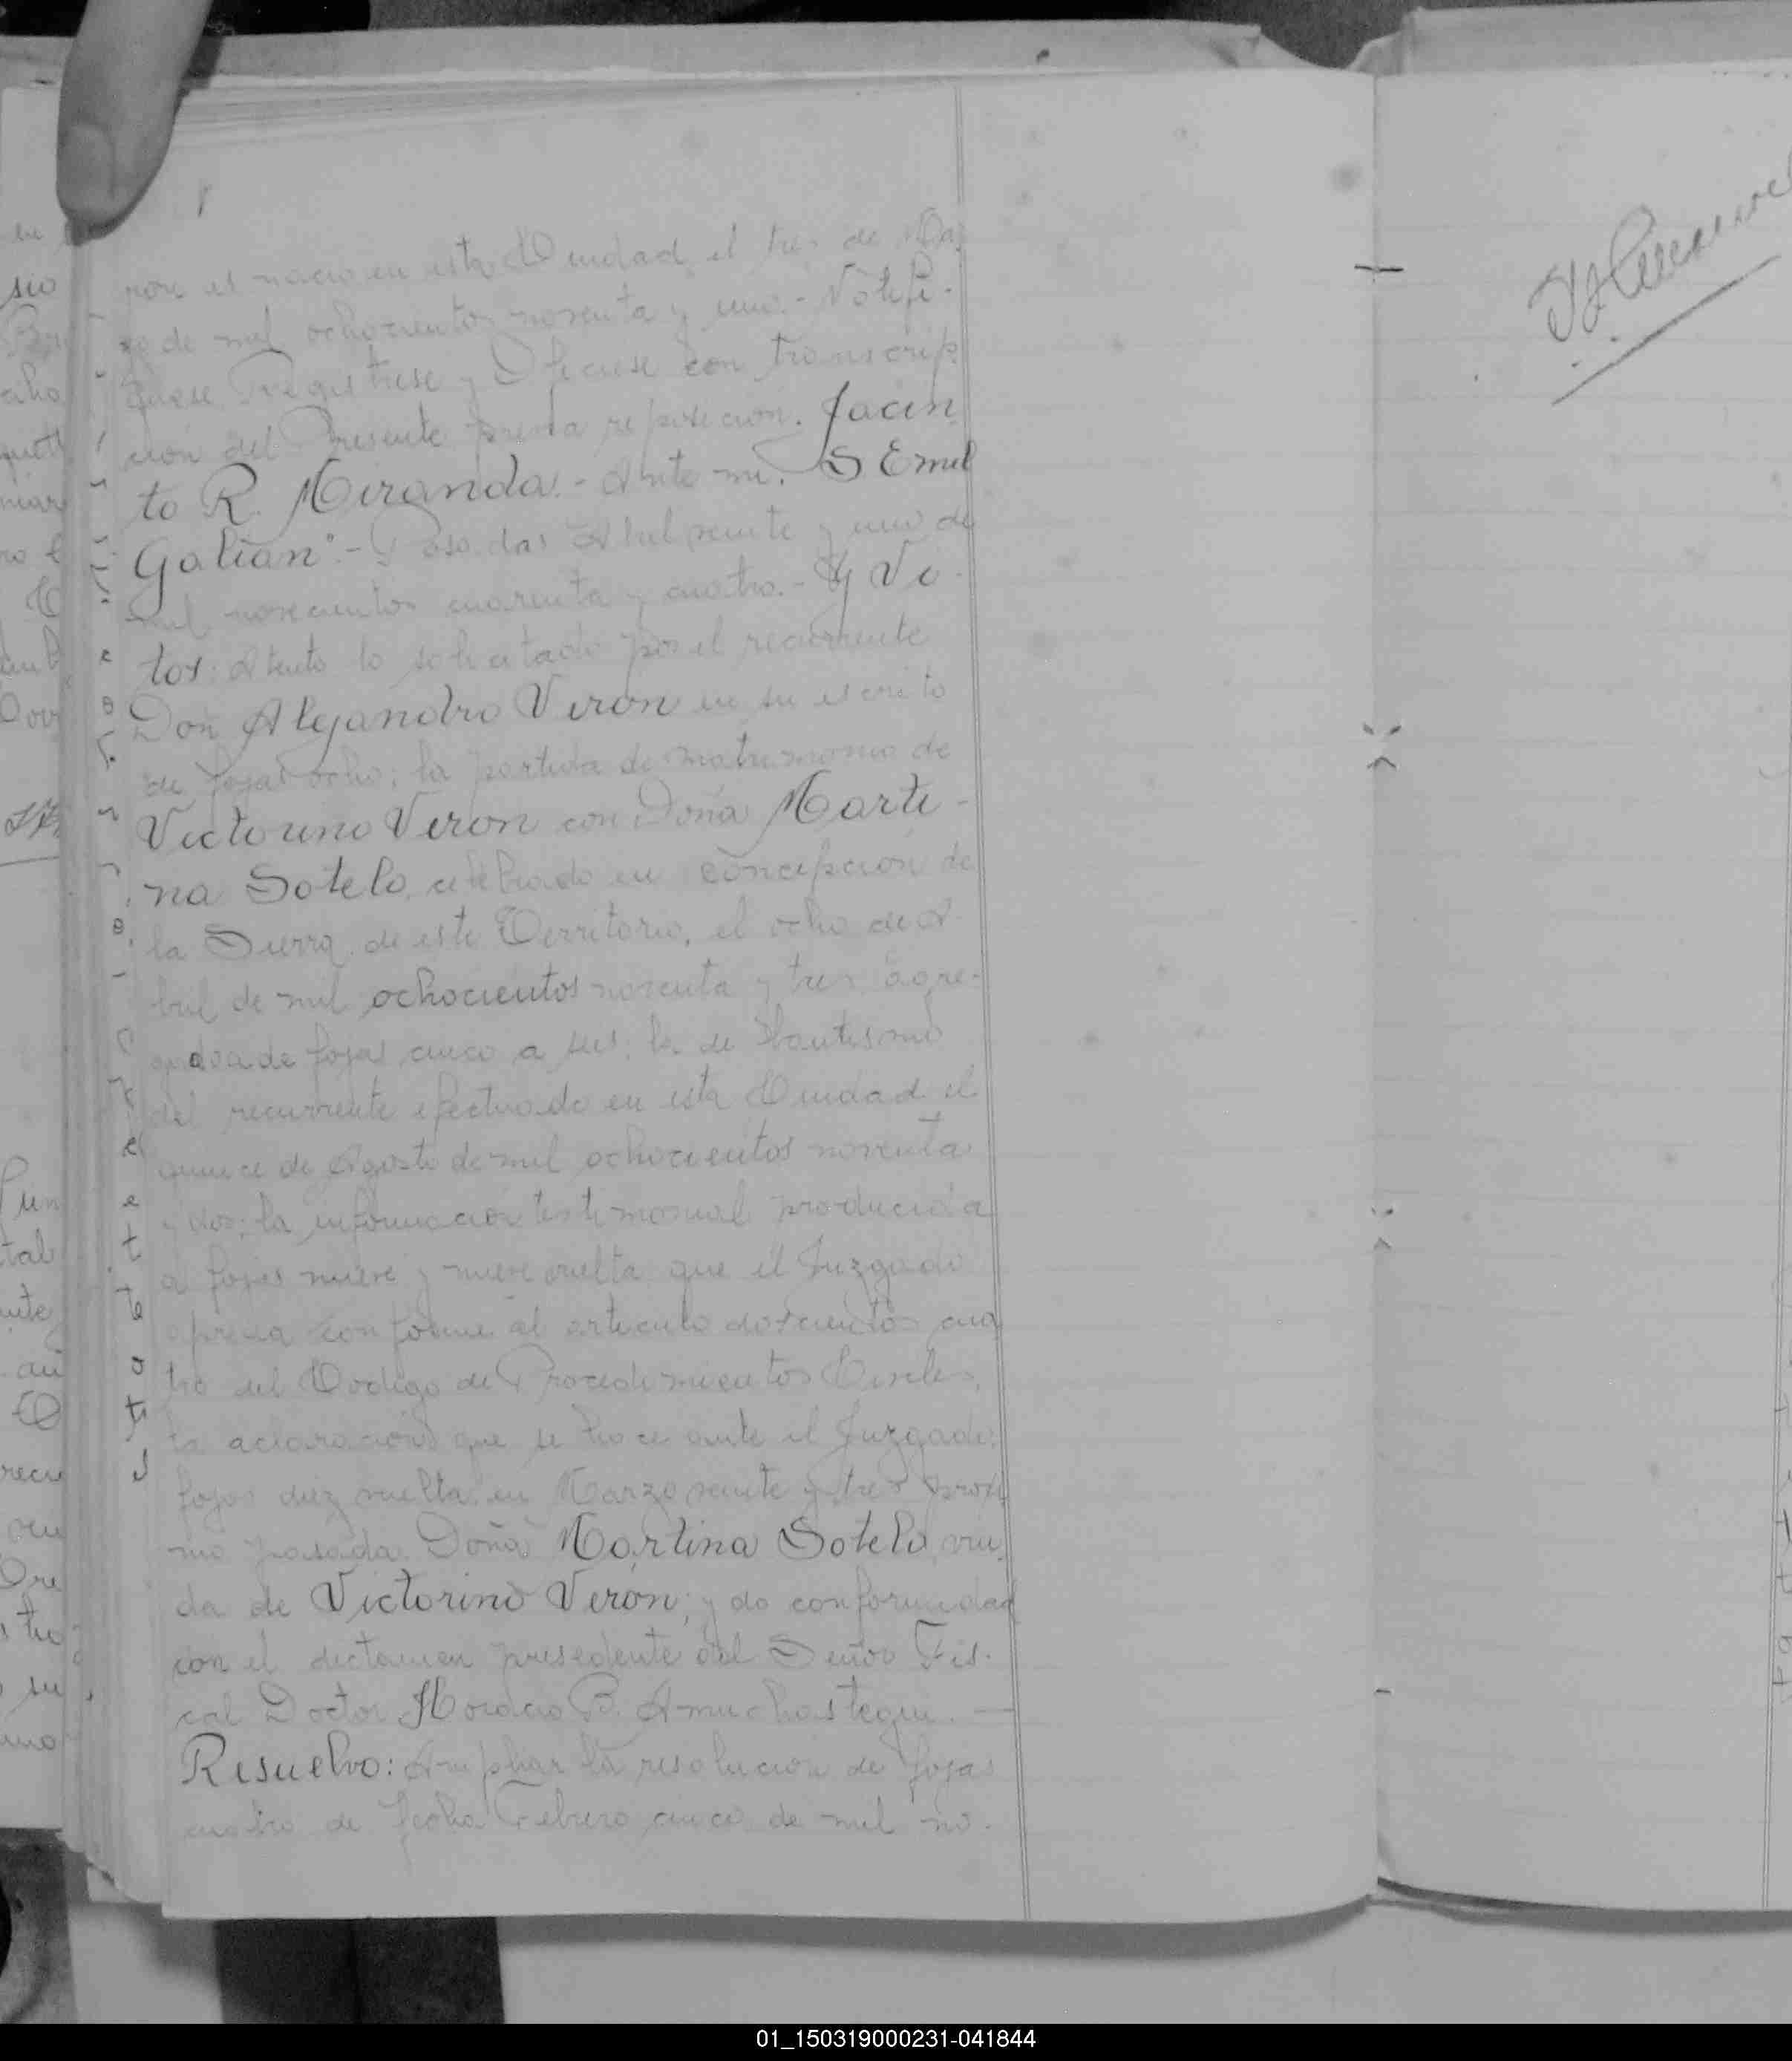 rore es nacio en esta Ciudad el tres de Ma
yo de mil ochocientos noventa y uno.- Notifi-
quese Registrese y Oficiese con transcrip
cion del Presente previa reposicion. Jacin
to R. Miranda.- Ante mi. S Emil
Galian°.- Posadas Abril veinte y uno de
mil novecientos cuarenta y cuatro.- Y Vis
tos: Atento lo solicitado por el recurrente
Don Alejandro Veron en su escrito
de fojas ocho; la partida de matrimonio de
Victorino Veron con Doña Marti-
na Sotelo, celebrado en Concepcion de
la Sierra de este Territorio, el ocho de A
bril de mil ochocientos noventa y tres agre-
gada de fojas cinco a seis; la de Bautismo
del recurrente efectuado en esta Ciudad el
quince de Agosto de mil ochocientos noventa
y dos; la informacion testimonial producida
a fojas nueve y nueve vuelta que el Juzgado
aprecia conforme al articulo doscientos cua
tro del Codigo de Procedimientos Civiles,
la aclaracion que se hace ante el Juzgado
fojas diez vuelta en Marzo veinte y tres proxi
mo pasado Doña Martina Sotelo viu
da de Victorino Verón; y do conformidad
con el dictamen presedente del Señor Fis-
cal Doctor Horacio B. Amuchastegui. —
Resuelvo: Ampliar la resolucion de fojas
cuatro de fecha Febrero cinco de mil no-
01_150319000231-041844